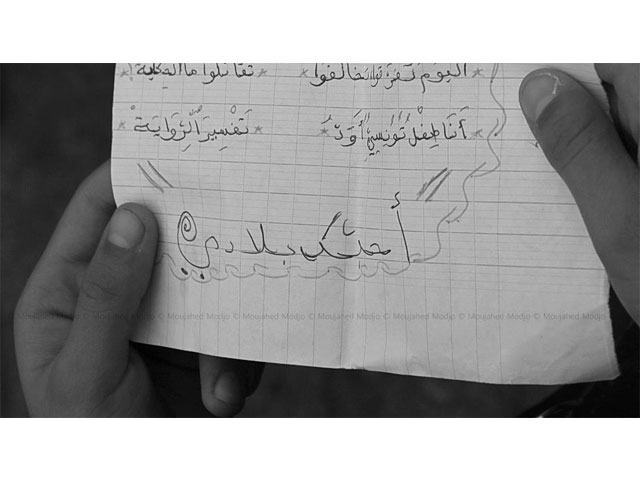 اليوم تفرقوا تخالفوا * تقاتلوا ما الحكاية؟
* أَنَا طِفْلٌ تُونِسِيٌّ أَوَدُّ * تَفْسِيرَ الرِّوَايَةْ *
أحبّك بلادي
© Moujahed Modjo © Moujahed Modjo © Moujahed Modjo © Moujahed Modjo © Moujahed Modjo © Moujahed Modjo © Moujahed Modjo